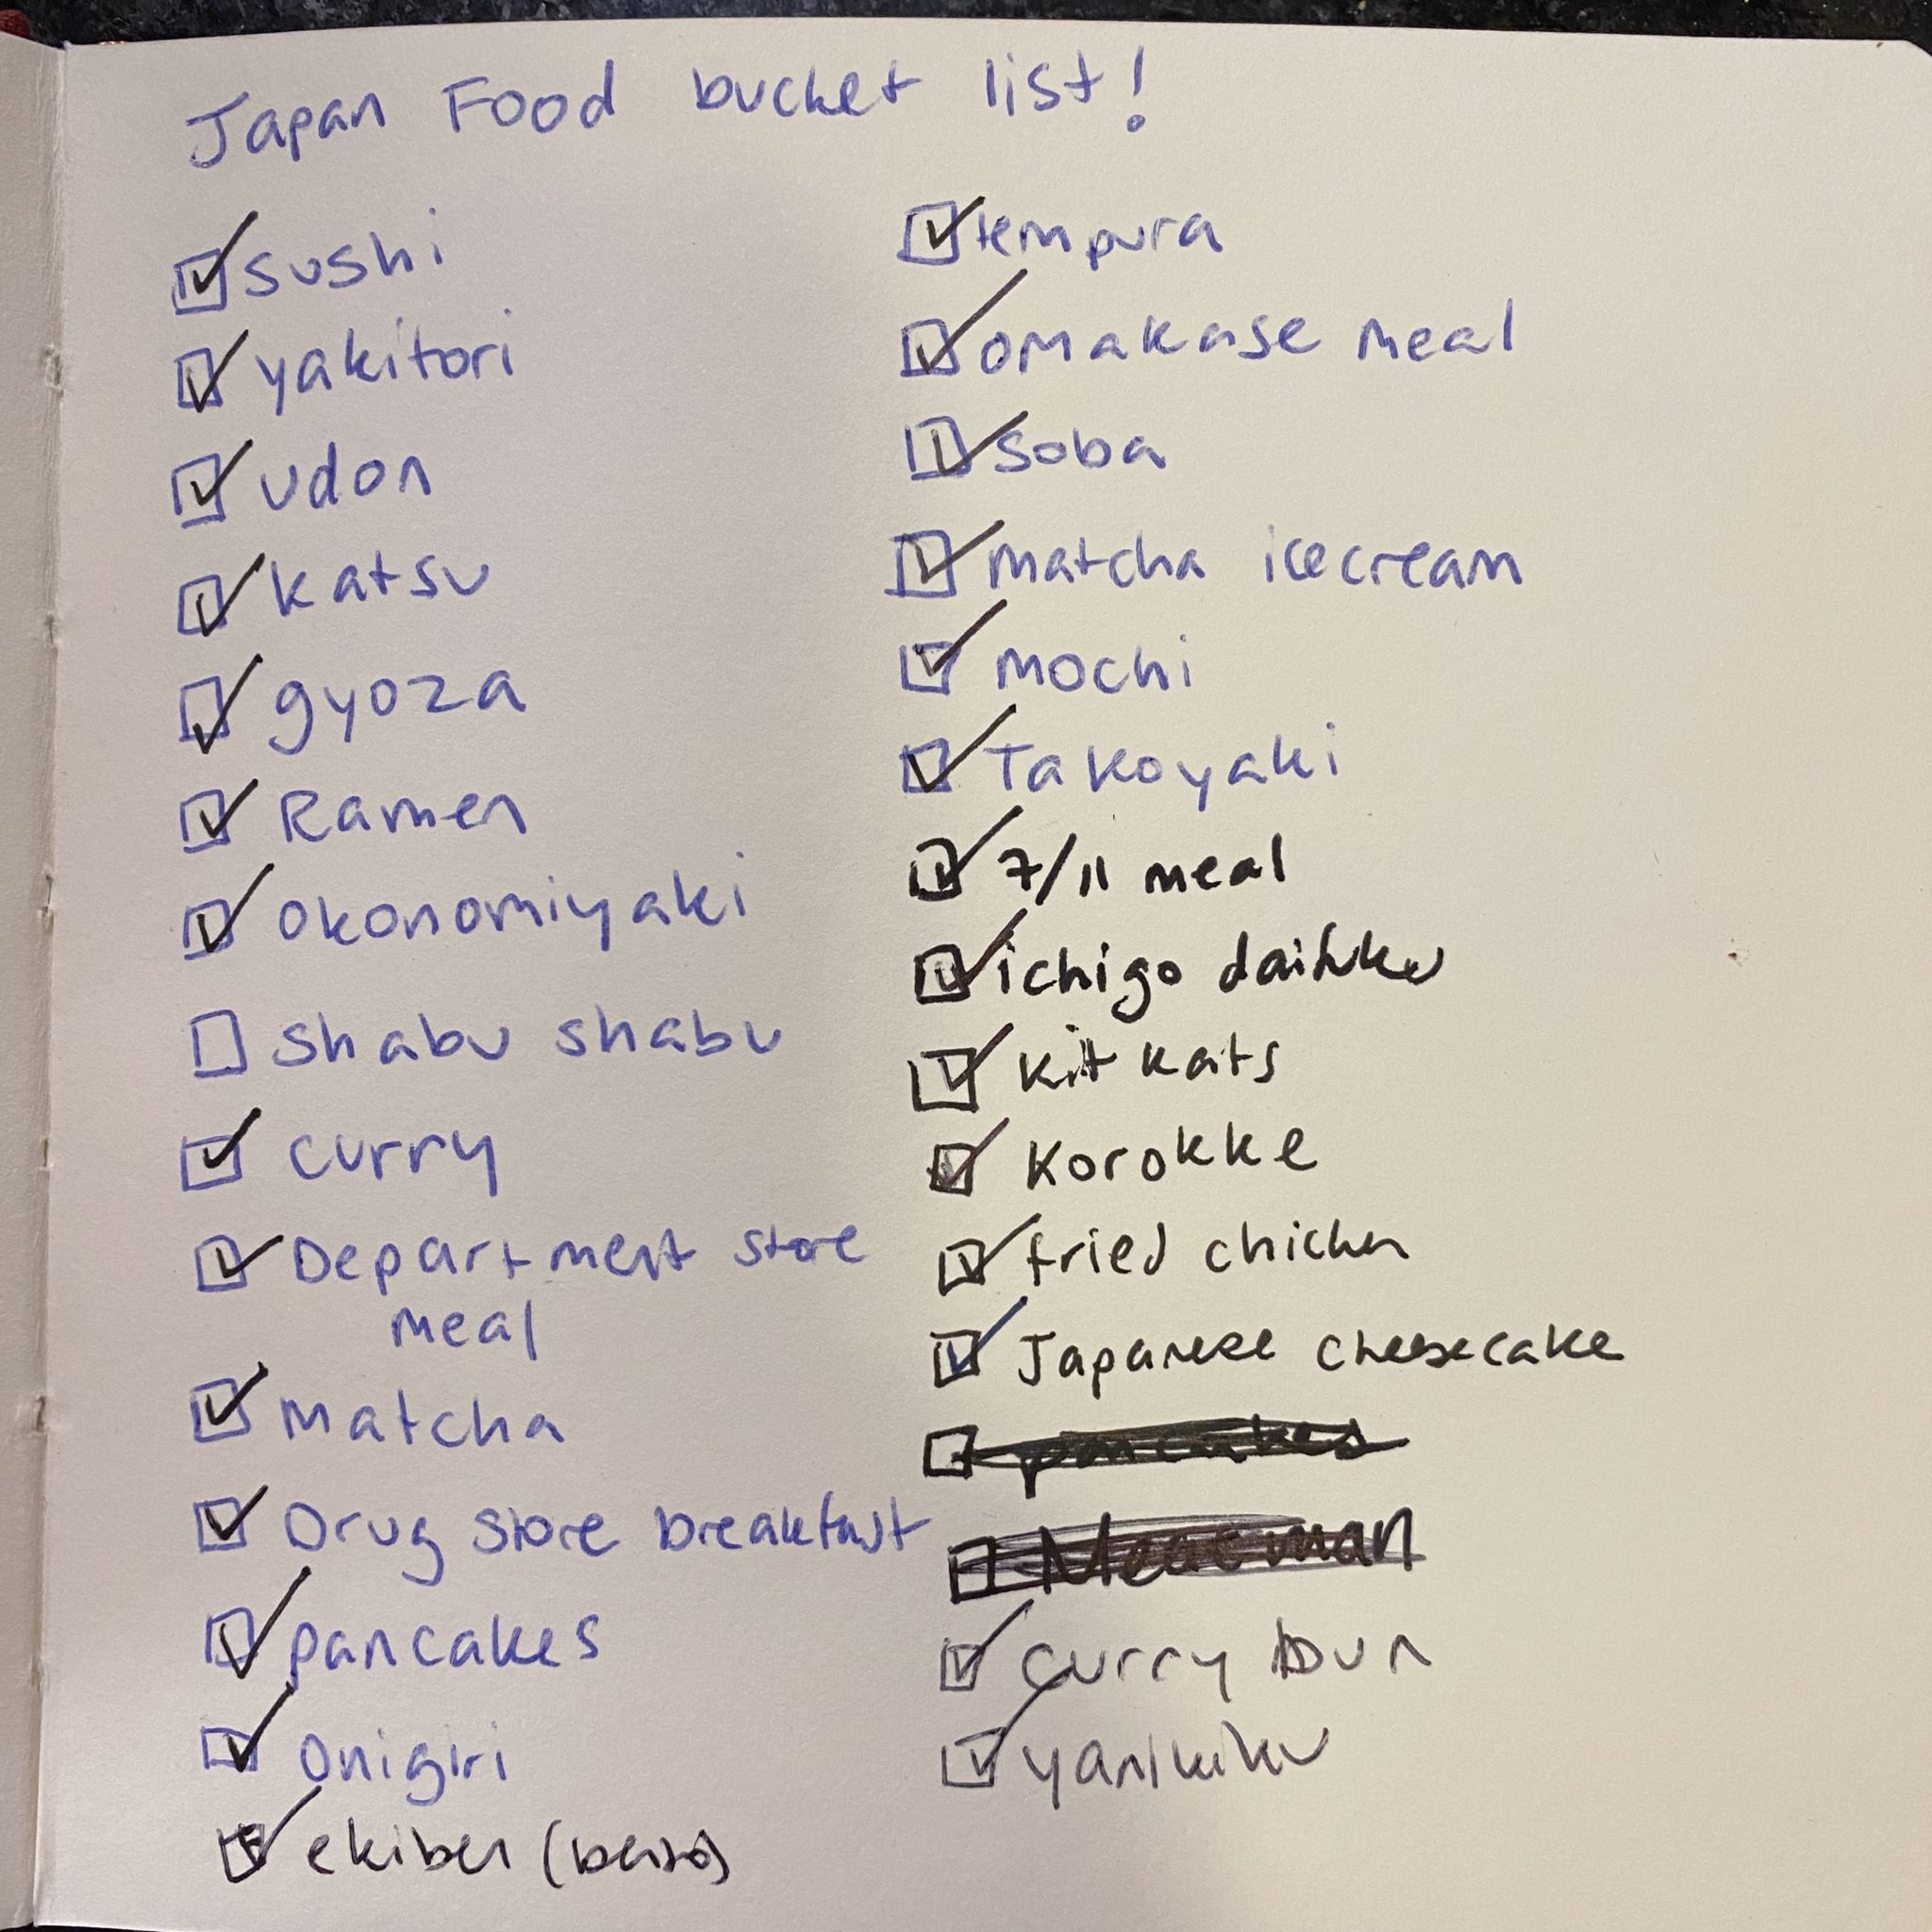 Japan Food bucket list!
sushi
yakitori
udon
katsu
gyoza
Ramen
okonomiyaki
shabu shabu
curry
Department store
meal
matcha
Drug store breakfast
pancakes
onigiri
ekiben (bento)
tempura
omakase meal
soba
matcha icecream
mochi
Takoyaki
7/11 meal
ichigo daifuku
kit kats
Korokke
fried chicken
Japanese cheesecake
pancakes
curry bun
yanikiku